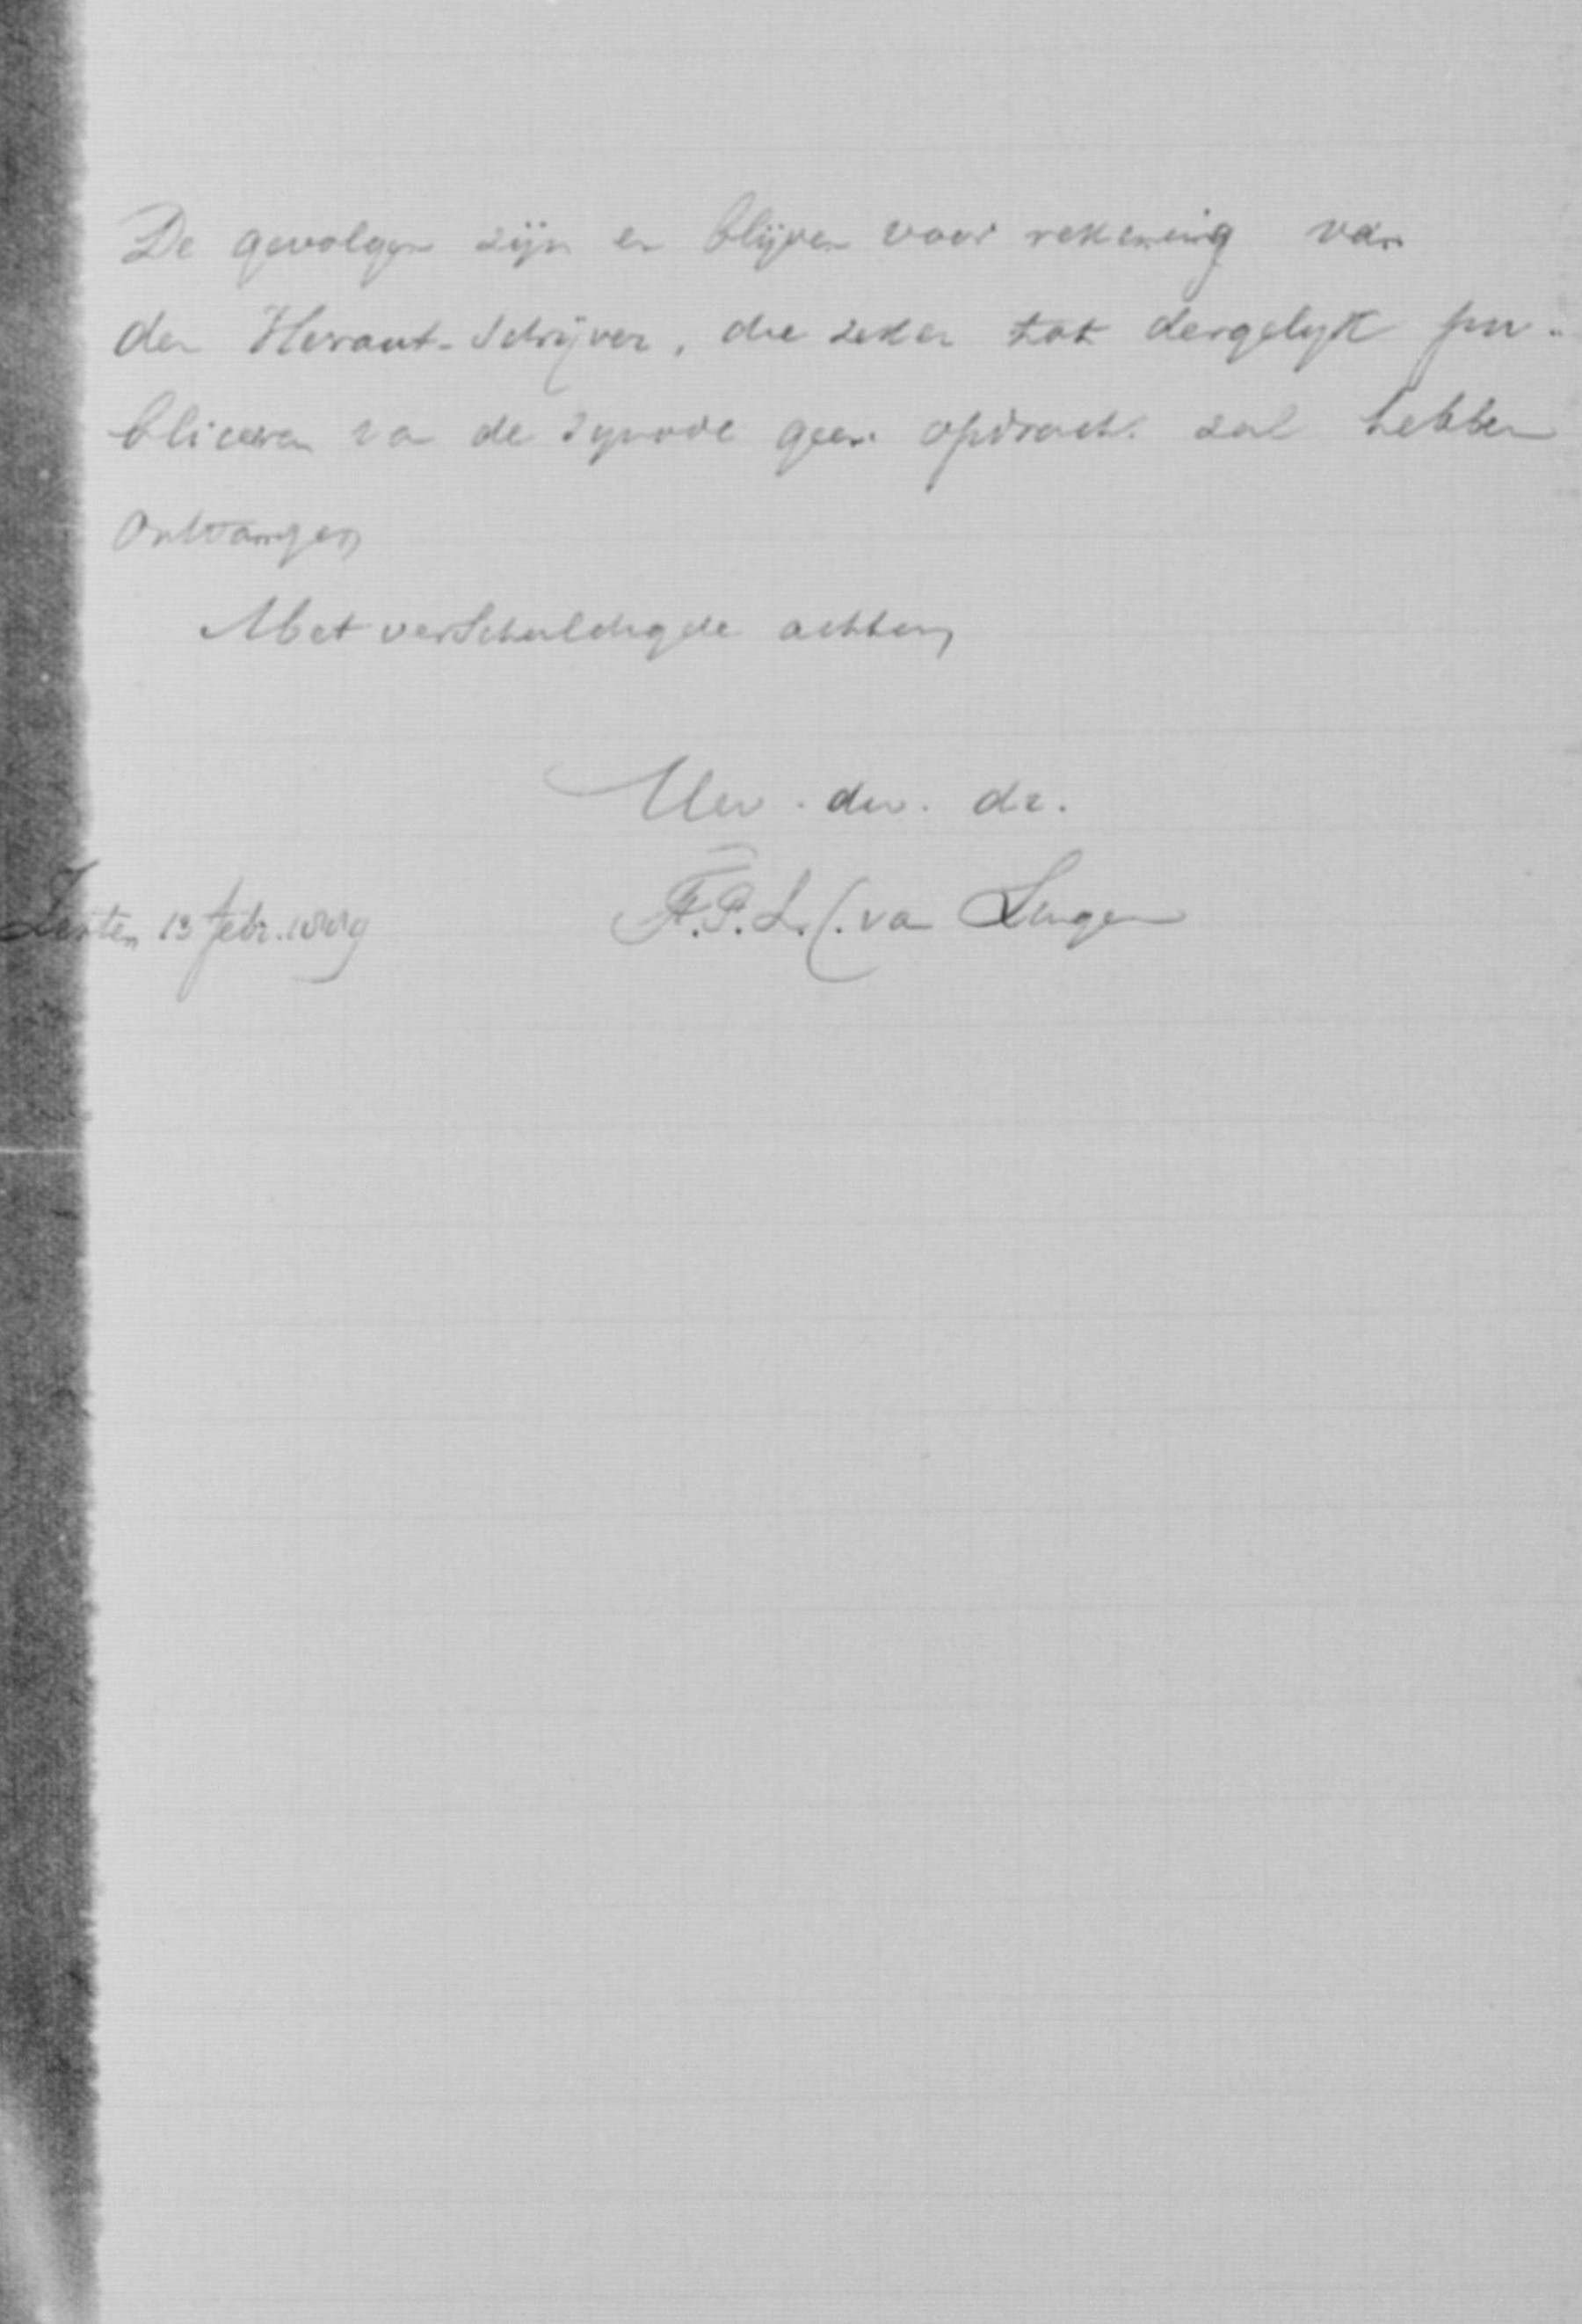 De gevolgen zijn en blijven voor rekening van
den Heraut-Schrijver, die zeker tot dergelyk pu-
bliceeren van de Synode geen opdracht zal hebben
ontvangen
Met verschuldigde achting
Uw. dw. dr.
F.P.L.C. van Lingen
Zetten 13 Febr. 1889